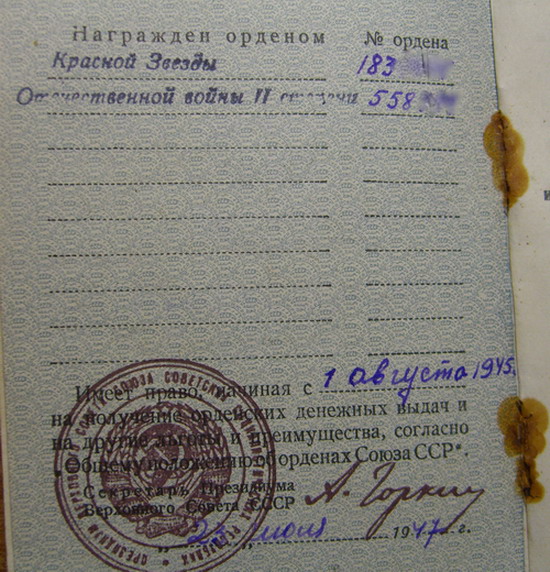 Награжден орденом № ордена
Красной Звезды 183
Отечественной войны II степени 558
Имеет право, начиная с 1 августа 1945.
на получение орденских денежных выдач и
на другие льготы и преимущества, согласно
„Общему положению об орденах Союза ССР“.
Секретарь Президиума
Верховного Совета СССР А. Горкин
июля 1947 г.